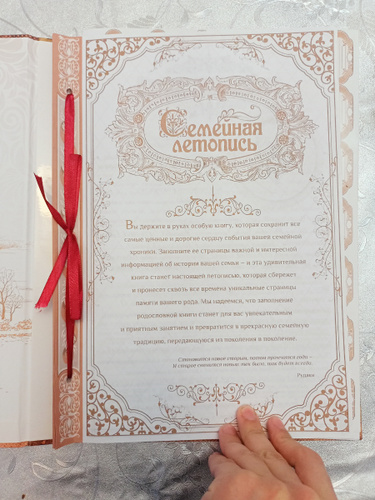 Семейная
летопись
Вы держите в руках особую книгу, которая сохранит все
самые ценные и дорогие сердцу события вашей семейной
хроники. Заполните ее страницы важной и интересной
информацией об истории вашей семьи – и эта удивительная
книга станет настоящей летописью, которая сбережет
и пронесет сквозь все времена уникальные страницы
памяти вашего рода. Мы надеемся, что заполнение
родословной книги станет для вас увлекательным
и приятным занятием и превратится в прекрасную семейную
традицию, передающуюся из поколения в поколение.
Становится новое старым, потом
И старое сменится новым,
Рудаки